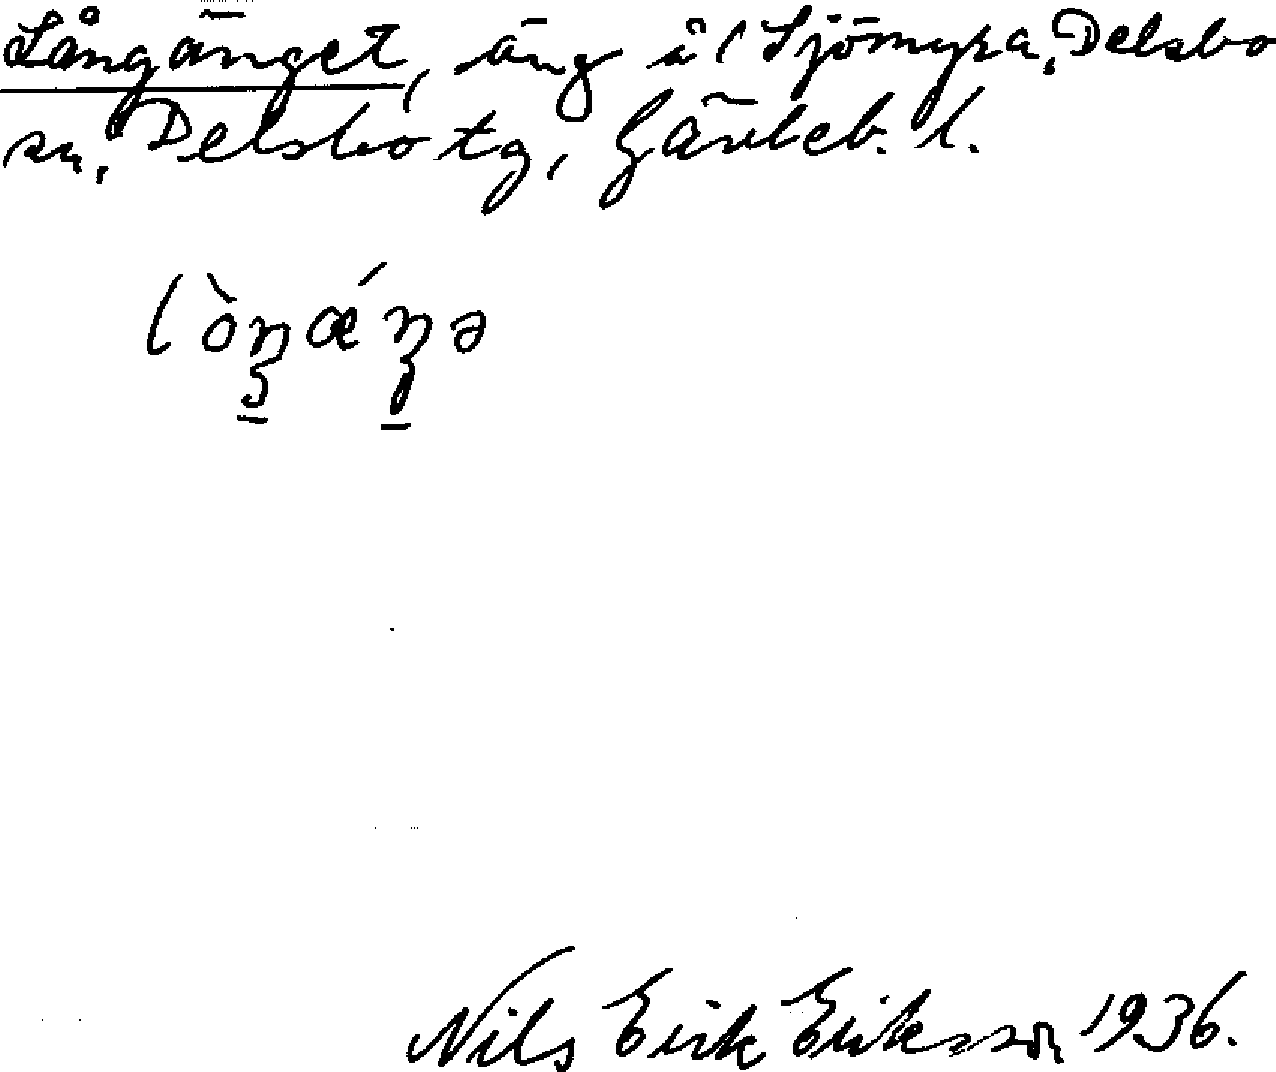 Långänget, äng å l Sjömyra, Delsbo
sn, Delsbo tg, Gävleb. l.
lòŋǽŋə
Nils Erik Eriksson 1936.